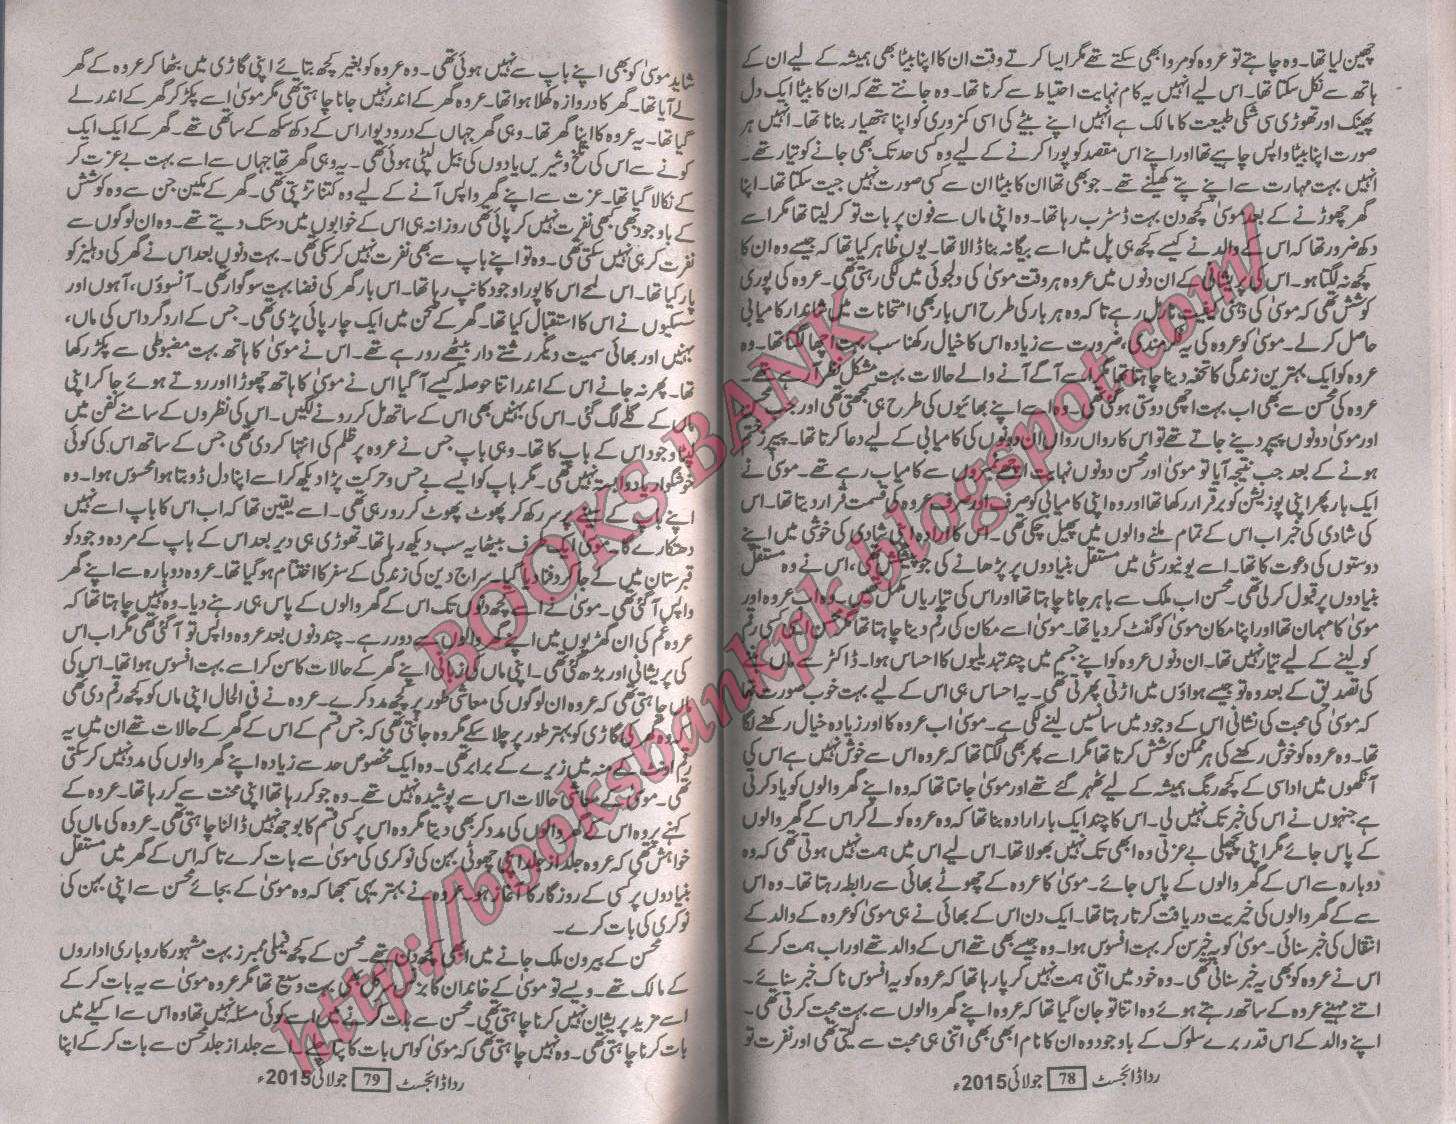 چھین لیا تھا۔ وہ چاہتے تو عروہ کو مروا بھی سکتے تھے مگر ایسا کرتے وقت ان کا اپنا بیٹا بھی ہمیشہ کے لیے ان کے
ہاتھ سے نکل سکتا تھا۔ اس لیے انہیں یہ کام نہایت احتیاط سے کرنا تھا۔ وہ جانتے تھے کہ ان کا بیٹا ایک دل
پھینک اور تھوڑی سی شکی طبیعت کا مالک ہے انہیں اپنے بیٹے کی اسی کمزوری کو اپنا ہتھیار بنانا تھا۔ انہیں ہر
صورت اپنا بیٹا واپس چاہیے تھا اور اپنے اس مقصد کو پورا کرنے کے لیے وہ کسی حد تک بھی جانے کو تیار تھے۔
انہیں بہت مہارت سے اپنے پتے کھیلنے تھے۔ جو بھی تھا ان کا بیٹا ان سے کسی صورت نہیں جیت سکتا تھا۔ اپنا
گھر چھوڑنے کے بعد موسیٰ کچھ دن بہت ڈسٹرب رہا تھا۔ وہ اپنی ماں سے فون پر بات تو کر لیتا تھا مگر اسے
دکھ ضرور تھا کہ اس کے والد نے کیسے کچھ ہی پل میں اسے بیگانہ بنا ڈالا تھا۔ یوں ظاہر کیا تھا کہ جیسے وہ ان کا
کچھ نہ لگتا ہو۔ اس کی پریشانی کے ان دنوں میں عروہ ہر وقت موسیٰ کی دلجوئی میں لگی رہتی تھی۔ عروہ کی پوری
کوشش تھی کہ موسیٰ کی ذہنی کیفیت نارمل رہے تا کہ وہ ہر بار کی طرح اس بار بھی امتحانات میں شاندار کامیابی
حاصل کرلے۔ موسیٰ کو عروہ کی یہ فکرمندی، ضرورت سے زیادہ اس کا خیال رکھنا سب بہت اچھا لگتا تھا۔ وہ
عروہ کو ایک بہترین زندگی کا تحفہ دینا چاہتا تھا مگر اسے آگے آنے والے حالات بہت مشکل نظر آ رہے تھے۔
عروہ کی محسن سے بھی اب بہت اچھی دوستی ہوگئی تھی۔ وہ اسے اپنے بھائیوں کی طرح ہی سمجھتی تھی اور جب محسن
اور موسیٰ دونوں پیپر دینے جاتے تھے تو اس کا رواں رواں ان دونوں کی کامیابی کے لیے دعا کرتا تھا۔ پیپرز ختم
ہونے کے بعد جب نتیجہ آیا تو موسیٰ اور محسن دونوں نہایت اچھے نمبروں سے کامیاب رہے تھے۔ موسیٰ نے
ایک بار پھر اپنی پوزیشن کو برقرار رکھا تھا اور وہ اپنی کامیابی کو صرف اور صرف عروہ کی قسمت قرار دیتا تھا۔ اس
کی شادی کی خبر اب اس کے تمام ملنے والوں میں پھیل چکی تھی۔ اس کا ارادہ اپنی شادی کی خوشی میں اپنے
دوستوں کی دعوت کا تھا۔ اسے یونیورسٹی میں مستقل بنیادوں پر پڑھانے کی جو پیشکش تھی، اس نے وہ مستقل
بنیادوں پر قبول کرلی تھی۔ محسن اب ملک سے باہر جانا چاہتا تھا اور اس کی تیاریاں مکمل تھیں۔ وہ اب عروہ اور
موسیٰ کا مہمان تھا اور اپنا مکان موسیٰ کو گفٹ کر دیا تھا۔ موسیٰ اسے مکان کی رقم دینا چاہتا تھا مگر محسن اس کی رقم
کو لینے کے لیے تیار نہیں تھا۔ ان دنوں عروہ کو اپنے جسم میں چند تبدیلیوں کا احساس ہوا۔ ڈاکٹر سے ماں بننے
کی تصدیق کے بعد وہ تو جیسے ہواؤں میں اڑتی پھرتی تھی۔ یہ احساس ہی اس کے لیے بہت خوب صورت تھا
کہ موسیٰ کی محبت کی نشانی اس کے وجود میں سانسیں لینے لگی ہے۔ موسیٰ اب عروہ کا اور زیادہ خیال رکھنے لگا
تھا۔ وہ عروہ کو خوش رکھنے کی ہر ممکن کوشش کرتا تھا مگر اسے پھر بھی لگتا تھا کہ عروہ اس سے خوش نہیں ہے اس کی
آنکھوں میں اداسی کے کچھ رنگ ہمیشہ کے لیے ٹھہر گئے تھے اور موسیٰ جانتا تھا کہ وہ اپنے گھر والوں کو یاد کرتی
ہے جنہوں نے اس کی خبر تک نہیں لی۔ اس کا چند ایک بار ارادہ بنا تھا کہ وہ عروہ کو لے کر اس کے گھر والوں
کے پاس جائے مگر اپنی پچھلی بے عزتی وہ ابھی تک نہیں بھولا تھا۔ اس لیے اس میں ہمت نہیں ہوتی تھی کہ وہ
دوبارہ سے اس کے گھر والوں کے پاس جائے۔ موسیٰ کا عروہ کے چھوٹے بھائی سے رابطہ رہتا تھا۔ وہ اس
سے گھر والوں کی خیریت دریافت کرتا رہتا تھا۔ ایک دن اس کے بھائی نے ہی موسیٰ کو عروہ کے والد کے
انتقال کی خبر سنائی۔ موسیٰ کو یہ خبر سن کر بہت افسوس ہوا۔ وہ جیسے بھی تھے اس کے والد تھے اور اب ہمت کر کے
اس نے عروہ کو بھی یہ خبر سنانی تھی۔ وہ خود میں اتنی ہمت نہیں کر پا رہا تھا کہ عروہ کو یہ افسوس ناک خبر سنائے۔
اتنے مہینے عروہ کے ساتھ رہتے ہوئے وہ اتنا تو جان گیا تھا کہ عروہ اپنے گھر والوں سے بہت محبت کرتی تھی۔
اپنے والد کے اس قدر برے سلوک کے باوجود وہ ان کا نام ابھی بھی اتنی ہی محبت سے لیتی تھی اور نفرت تو
ردا ڈائجسٹ 78 جولائی 2015ء
شاید موسیٰ کو بھی اپنے باپ سے نہیں ہوئی تھی۔ وہ عروہ کو بغیر کچھ بتائے اپنی گاڑی میں بٹھا کر عروہ کے گھر
لے آیا تھا۔ گھر کا دروازہ کھلا ہوا تھا۔ عروہ گھر کے اندر نہیں جانا چاہتی تھی مگر موسیٰ اسے پکڑ کر گھر کے اندر لے
گیا تھا۔ یہ عروہ کا اپنا گھر تھا۔ وہی گھر جہاں کے در و دیوار اس کے دکھ سکھ کے ساتھی تھے۔ گھر کے ایک ایک
کونے سے اس کی تلخ و شیریں یادوں کی بیل لپٹی ہوئی تھی۔ یہ وہی گھر تھا جہاں سے اسے بہت بے عزت کر
کے نکالا گیا تھا۔ عزت سے اپنے گھر واپس آنے کے لیے وہ کتنا تڑپتی تھی۔ گھر کے مکین جن سے وہ کوشش
کے باوجود بھی کبھی نفرت نہیں کر پائی تھی روزانہ ہی اس کے خوابوں میں دستک دیتے تھے۔ وہ ان لوگوں سے
نفرت کر ہی نہیں سکتی تھی۔ وہ تو اپنے باپ سے بھی نفرت نہیں کر سکی تھی۔ بہت دنوں بعد اس نے گھر کی دہلیز کو
پار کیا تھا۔ اس لمحے اس کا پورا وجود کانپ رہا تھا۔ اس بار گھر کی فضا بہت سوگوار تھی۔ آنسوؤں، آہوں اور
سسکیوں نے اس کا استقبال کیا تھا۔ گھر کے صحن میں ایک چارپائی پڑی تھی۔ جس کے ارد گرد اس کی ماں،
بہنیں اور بھائی سمیت دیگر رشتے دار بیٹھے رو رہے تھے۔ اس نے موسیٰ کا ہاتھ بہت مضبوطی سے پکڑ رکھا
تھا۔ پھر نہ جانے اس کے اندر اتنا حوصلہ کیسے آ گیا اس نے موسیٰ کا ہاتھ چھوڑا اور روتے ہوئے جا کر اپنی
ماں کے گلے لگ گئی۔ اس کی بہنیں بھی اس کے ساتھ مل کر رونے لگیں۔ اس کی نظروں کے سامنے کفن میں
لپٹا وجود اس کے باپ کا تھا۔ وہی باپ جس نے عروہ پر ظلم کی انتہا کردی تھی جس کے ساتھ اس کی کوئی
خوشگوار یاد وابستہ نہیں تھی۔ مگر باپ کو ایسے بے حس و حرکت پڑا دیکھ کر اسے اپنا دل ڈوبتا ہوا محسوس ہوا۔ وہ
اپنے باپ کے سینے پر سر رکھ کر پھوٹ پھوٹ کر رو رہی تھی۔ اسے یقین تھا کہ اب اس کا باپ اسے نہیں
دھتکارے گا۔ موسیٰ ایک طرف بیٹھا یہ سب دیکھ رہا تھا۔ تھوڑی ہی دیر بعد اس کے باپ کے مردہ وجود کو
قبرستان میں لے جا کر دفنا دیا گیا۔ سراج دین کی زندگی کے سفر کا اختتام ہوگیا تھا۔ عروہ دوبارہ سے اپنے گھر
واپس آ گئی تھی۔ موسیٰ نے اسے کچھ دنوں تک اس کے گھر والوں کے پاس ہی رہنے دیا۔ وہ نہیں چاہتا تھا کہ
عروہ غم کی ان گھڑیوں میں اپنے گھر والوں سے دور رہے۔ چند دنوں بعد عروہ واپس تو آ گئی تھی مگر اب اس
کی پریشانی اور بڑھ گئی تھی۔ اپنی ماں کی زبانی اپنے گھر کے حالات کا سن کر اسے بہت افسوس ہوا تھا۔ اس کی
ماں چاہتی تھی کہ عروہ ان لوگوں کی معاشی طور پر کچھ مدد کرے۔ عروہ نے فی الحال اپنی ماں کو کچھ رقم دی تھی
کہ وہ گھر کی گاڑی کو بہتر طور پر چلا سکے مگر وہ جانتی تھی کہ جس قسم کے اس کے گھر کے حالات تھے ان میں یہ
رقم اونٹ کے منہ میں زیرے کے برابر تھی۔ وہ ایک مخصوص حد سے زیادہ اپنے گھر والوں کی مدد نہیں کر سکتی
تھی۔ موسیٰ کے معاشی حالات اس سے پوشیدہ نہیں تھے۔ وہ جو کر رہا تھا اپنی محنت سے کر رہا تھا۔ عروہ کے
کہنے پر وہ اس کے گھر والوں کی مدد کر بھی دیتا مگر وہ اس پر کسی قسم کا بوجھ نہیں ڈالنا چاہتی تھی۔ عروہ کی ماں کی
خواہش تھی کہ عروہ جلد از جلد اپنی چھوٹی بہن کی نوکری کی موسیٰ سے بات کرے تا کہ اس کے گھر میں مستقل
بنیادوں پر کسی کے روزگار کا آغاز ہو۔ عروہ نے بہتر یہی سمجھا کہ وہ موسیٰ کے بجائے محسن سے اپنی بہن کی
نوکری کی بات کرے۔
محسن کے بیرون ملک جانے میں ابھی کچھ دن تھے۔ محسن کے کچھ فیملی ممبرز بہت مشہور کاروباری اداروں
کے مالک تھے۔ ویسے تو موسیٰ کے خاندان کا بزنس سرکل بھی بہت وسیع تھا مگر عروہ موسیٰ سے یہ بات کر کے
اسے مزید پریشان نہیں کرنا چاہتی تھی۔ محسن سے بات کرنے میں اسے کوئی مسئلہ نہیں تھا وہ اس سے اکیلے میں
بات کرنا چاہتی تھی۔ وہ نہیں چاہتی تھی کہ موسیٰ کو اس بات کا پتا چلے۔ اسے جلد از جلد محسن سے بات کر کے اپنا
ردا ڈائجسٹ 79 جولائی 2015ء
BOOKS BANK
http://booksbankpk.blogspot.com/